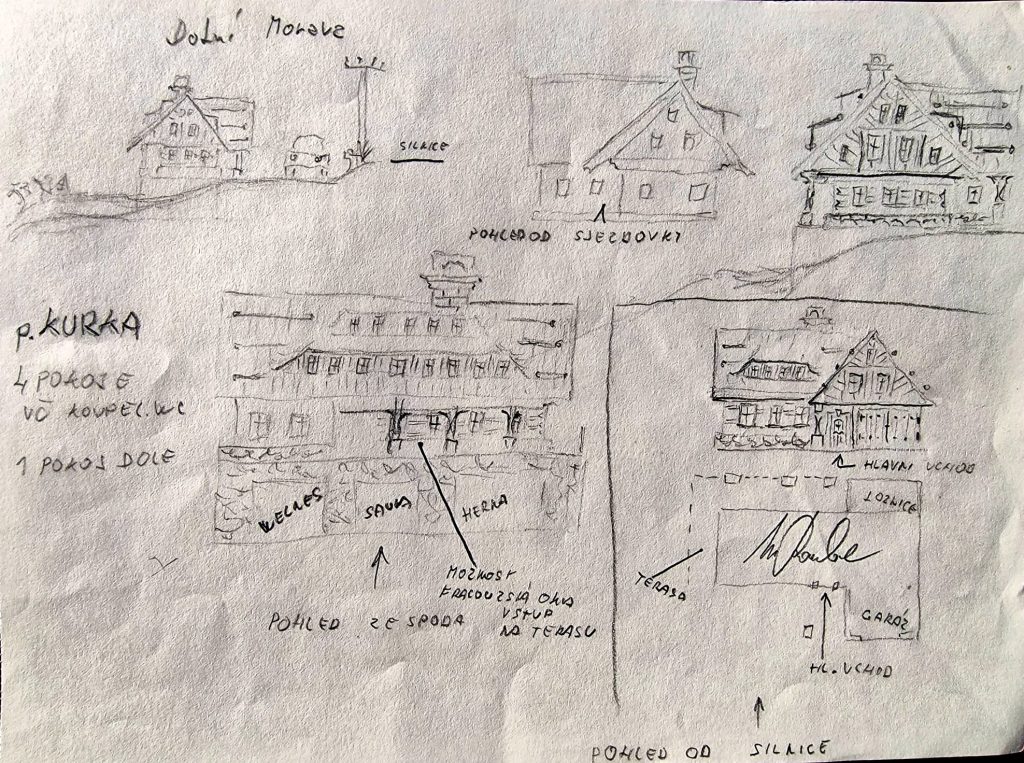 Dolní Morava
SILNICE
POHLED OD SJEZDOVKY
p. KURKA
4 POKOJE
VČ KOUPEL. WC
1 POKOJ DOLE
WELNES
SAUNA
HERNA
MOŽNOST
FRACOUZSKÁ OKNA
VSTUP
NA TERASU
POHLED ZE SPODA
HLAVNÍ VCHOD
LOŽNICE
TERASA
GARÁŽ
HL. VCHOD
POHLED OD SILNICE